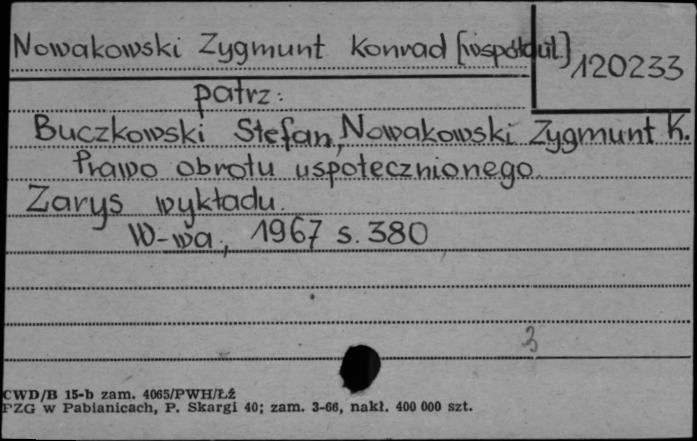 Nowakowski Zygmunt Konrad [współaut]
120233
patrz:
Buczkowski Stefan, Nowakowski Zygmunt K.
Prawo obrotu uspołecznionego.
Zarys wykładu.
W-wa, 1967 s. 380
3
CWD/B 15-b zam. 4065/PWH/ŁŻ
PZG w Pabianicach, P. Skargi 40; zam. 3-66, nakł. 400 000 szt.